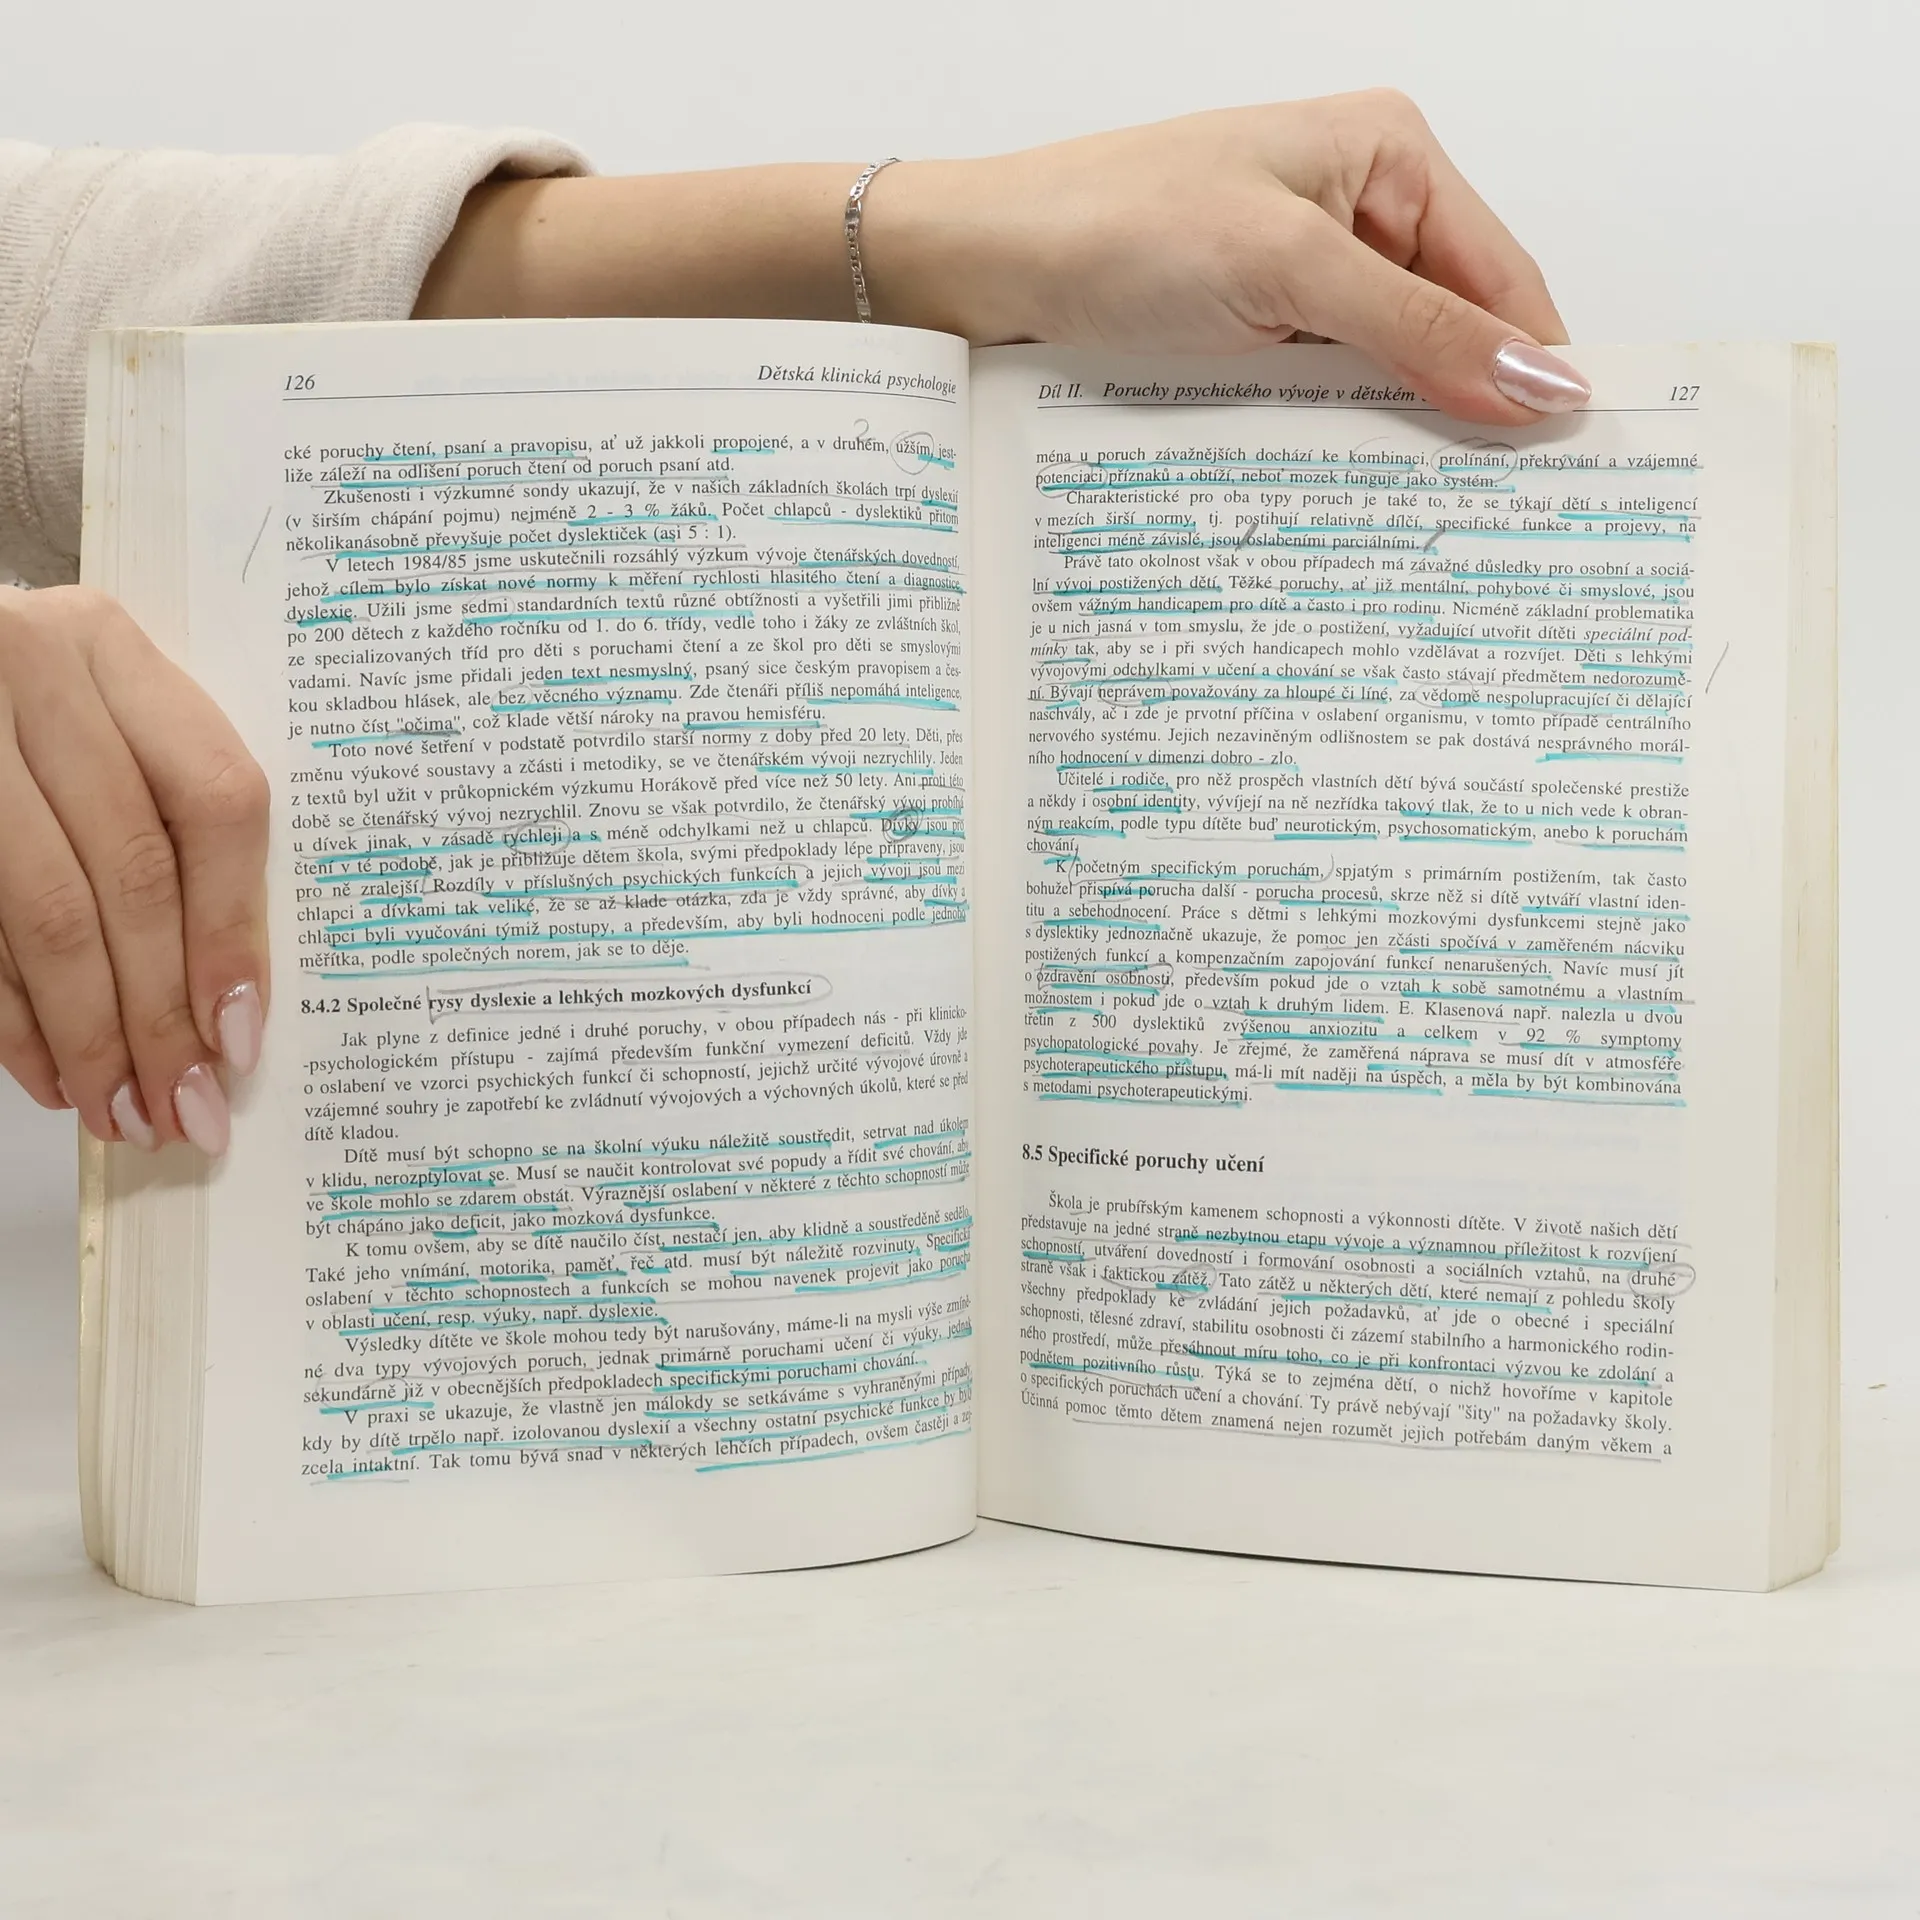 126
Dětská klinická psychologie
cké poruchy čtení, psaní a pravopisu, ať už jakkoli propojené, a v druhém, užším, jest-
liže záleží na odlišení poruch čtení od poruch psaní atd.
Zkušenosti i výzkumné sondy ukazují, že v našich základních školách trpí dyslexií
(v širším chápání pojmu) nejméně 2 - 3 % žáků. Počet chlapců - dyslektiků přitom
několikanásobně převyšuje počet dyslektiček (asi 5 : 1).
V letech 1984/85 jsme uskutečnili rozsáhlý výzkum vývoje čtenářských dovedností,
jehož cílem bylo získat nové normy k měření rychlosti hlasitého čtení a diagnostice
dyslexie. Užili jsme sedmi standardních textů různé obtížnosti a vyšetřili jimi přibližně
po 200 dětech z každého ročníku od 1. do 6. třídy, vedle toho i žáky ze zvláštních škol,
ze specializovaných tříd pro děti s poruchami čtení a ze škol pro děti se smyslovými
vadami. Navíc jsme přidali jeden text nesmyslný, psaný sice českým pravopisem a čes-
kou skladbou hlásek, ale bez věcného významu. Zde čtenáři příliš nepomáhá inteligence,
je nutno číst "očima", což klade větší nároky na pravou hemisféru.
Toto nové šetření v podstatě potvrdilo starší normy z doby před 20 lety. Děti, přes
změnu výukové soustavy a zčásti i metodiky, se ve čtenářském vývoji nezrychlily. Jeden
z textů byl užit v průkopnickém výzkumu Horákově před více než 50 lety. Ani proti této
době se čtenářský vývoj nezrychlil. Znovu se však potvrdilo, že čtenářský vývoj probíhá
u dívek jinak, v zásadě rychleji a s méně odchylkami než u chlapců. Dívky jsou pro
čtení v té podobě, jak je přibližuje dětem škola, svými předpoklady lépe připraveny, jsou
pro ně zralejší. Rozdíly v příslušných psychických funkcích a jejich vývoji jsou mezi
chlapci a dívkami tak veliké, že se až klade otázka, zda je vždy správné, aby dívky a
chlapci byli vyučováni týmiž postupy, a především, aby byli hodnoceni podle jednoho
měřítka, podle společných norem, jak se to děje.
8.4.2 Společné rysy dyslexie a lehkých mozkových dysfunkcí
Jak plyne z definice jedné i druhé poruchy, v obou případech nás - při klinicko-
-psychologickém přístupu - zajímá především funkční vymezení deficitů. Vždy jde
o oslabení ve vzorci psychických funkcí či schopností, jejichž určité vývojové úrovně a
vzájemné souhry je zapotřebí ke zvládnutí vývojových a výchovných úkolů, které se před
dítě kladou.
Dítě musí být schopno se na školní výuku náležitě soustředit, setrvat nad úkolem
v klidu, nerozptylovat se. Musí se naučit kontrolovat své popudy a řídit své chování, aby
ve škole mohlo se zdarem obstát. Výraznější oslabení v některé z těchto schopností může
být chápáno jako deficit, jako mozková dysfunkce.
K tomu ovšem, aby se dítě naučilo číst, nestačí jen, aby klidně a soustředěně sedělo.
Také jeho vnímání, motorika, paměť, řeč atd. musí být náležitě rozvinuty. Specifická
oslabení v těchto schopnostech a funkcích se mohou navenek projevit jako porucha
v oblasti učení, resp. výuky, např. dyslexie.
Výsledky dítěte ve škole mohou tedy být narušovány, máme-li na mysli výše zmíně-
né dva typy vývojových poruch, jednak primárně poruchami učení či výuky, jednak
sekundárně již v obecnějších předpokladech specifickými poruchami chování.
V praxi se ukazuje, že vlastně jen málokdy se setkáváme s vyhraněnými případy,
kdy by dítě trpělo např. izolovanou dyslexií a všechny ostatní psychické funkce by byly
zcela intaktní. Tak tomu bývá snad v některých lehčích případech, ovšem častěji a ze-
Díl II. Poruchy psychického vývoje v dětském
127
ména u poruch závažnějších dochází ke kombinaci, prolínání, překrývání a vzájemné
potenciaci příznaků a obtíží, neboť mozek funguje jako systém.
Charakteristické pro oba typy poruch je také to, že se týkají dětí s inteligencí
v mezích širší normy, tj. postihují relativně dílčí, specifické funkce a projevy, na
inteligenci méně závislé, jsou oslabeními parciálními.
Právě tato okolnost však v obou případech má závažné důsledky pro osobní a sociá-
lní vývoj postižených dětí. Těžké poruchy, ať již mentální, pohybové či smyslové, jsou
ovšem vážným handicapem pro dítě a často i pro rodinu. Nicméně základní problematika
je u nich jasná v tom smyslu, že jde o postižení, vyžadující utvořit dítěti speciální pod-
mínky tak, aby se i při svých handicapech mohlo vzdělávat a rozvíjet. Děti s lehkými
vývojovými odchylkami v učení a chování se však často stávají předmětem nedorozumě-
ní. Bývají neprávem považovány za hloupé či líné, za vědomě nespolupracující či dělající
naschvály, ač i zde je prvotní příčina v oslabení organismu, v tomto případě centrálního
nervového systému. Jejich nezaviněným odlišnostem se pak dostává nesprávného morál-
ního hodnocení v dimenzi dobro - zlo.
Učitelé i rodiče, pro něž prospěch vlastních dětí bývá součástí společenské prestiže
a někdy i osobní identity, vývíjejí na ně nezřídka takový tlak, že to u nich vede k obran-
ným reakcím, podle typu dítěte buď neurotickým, psychosomatickým, anebo k poruchám
chování.
K početným specifickým poruchám, spjatým s primárním postižením, tak často
bohužel přispívá porucha další - porucha procesů, skrze něž si dítě vytváří vlastní iden-
titu a sebehodnocení. Práce s dětmi s lehkými mozkovými dysfunkcemi stejně jako
s dyslektiky jednoznačně ukazuje, že pomoc jen zčásti spočívá v zaměřeném nácviku
postižených funkcí a kompenzačním zapojování funkcí nenarušených. Navíc musí jít
o ozdravění osobnosti, především pokud jde o vztah k sobě samotnému a vlastním
možnostem i pokud jde o vztah k druhým lidem. E. Klasenová např. nalezla u dvou
třetin z 500 dyslektiků zvýšenou anxiozitu a celkem v 92 % symptomy
psychopatologické povahy. Je zřejmé, že zaměřená náprava se musí dít v atmosféře
psychoterapeutického přístupu, má-li mít naději na úspěch, a měla by být kombinována
s metodami psychoterapeutickými.
8.5 Specifické poruchy učení
Škola je prubířským kamenem schopnosti a výkonnosti dítěte. V životě našich dětí
představuje na jedné straně nezbytnou etapu vývoje a významnou příležitost k rozvíjení
schopností, utváření dovedností i formování osobnosti a sociálních vztahů, na druhé
straně však i faktickou zátěž. Tato zátěž u některých dětí, které nemají z pohledu školy
všechny předpoklady ke zvládání jejich požadavků, ať jde o obecné i speciální
schopnosti, tělesné zdraví, stabilitu osobnosti či zázemí stabilního a harmonického rodin-
ného prostředí, může přesáhnout míru toho, co je při konfrontaci výzvou ke zdolání a
podnětem pozitivního růstu. Týká se to zejména dětí, o nichž hovoříme v kapitole
o specifických poruchách učení a chování. Ty právě nebývají "šity" na požadavky školy.
Účinná pomoc těmto dětem znamená nejen rozumět jejich potřebám daným věkem a